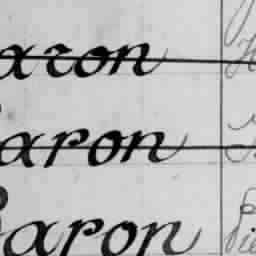 aron
aron
Baron